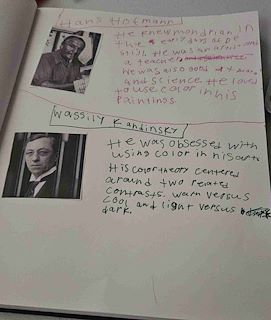 Hans Hofmann
He knew mondrian in
the early days of De
Stijl. He was an artist and
a teacher
He was also good at
and science He love
to use color in his
Paintings.
Wassily Kandinsky
He was obsessed with
using color in his art.
His color theory centered
around two related
contrasts. warm versus
cool and light versus
dark.